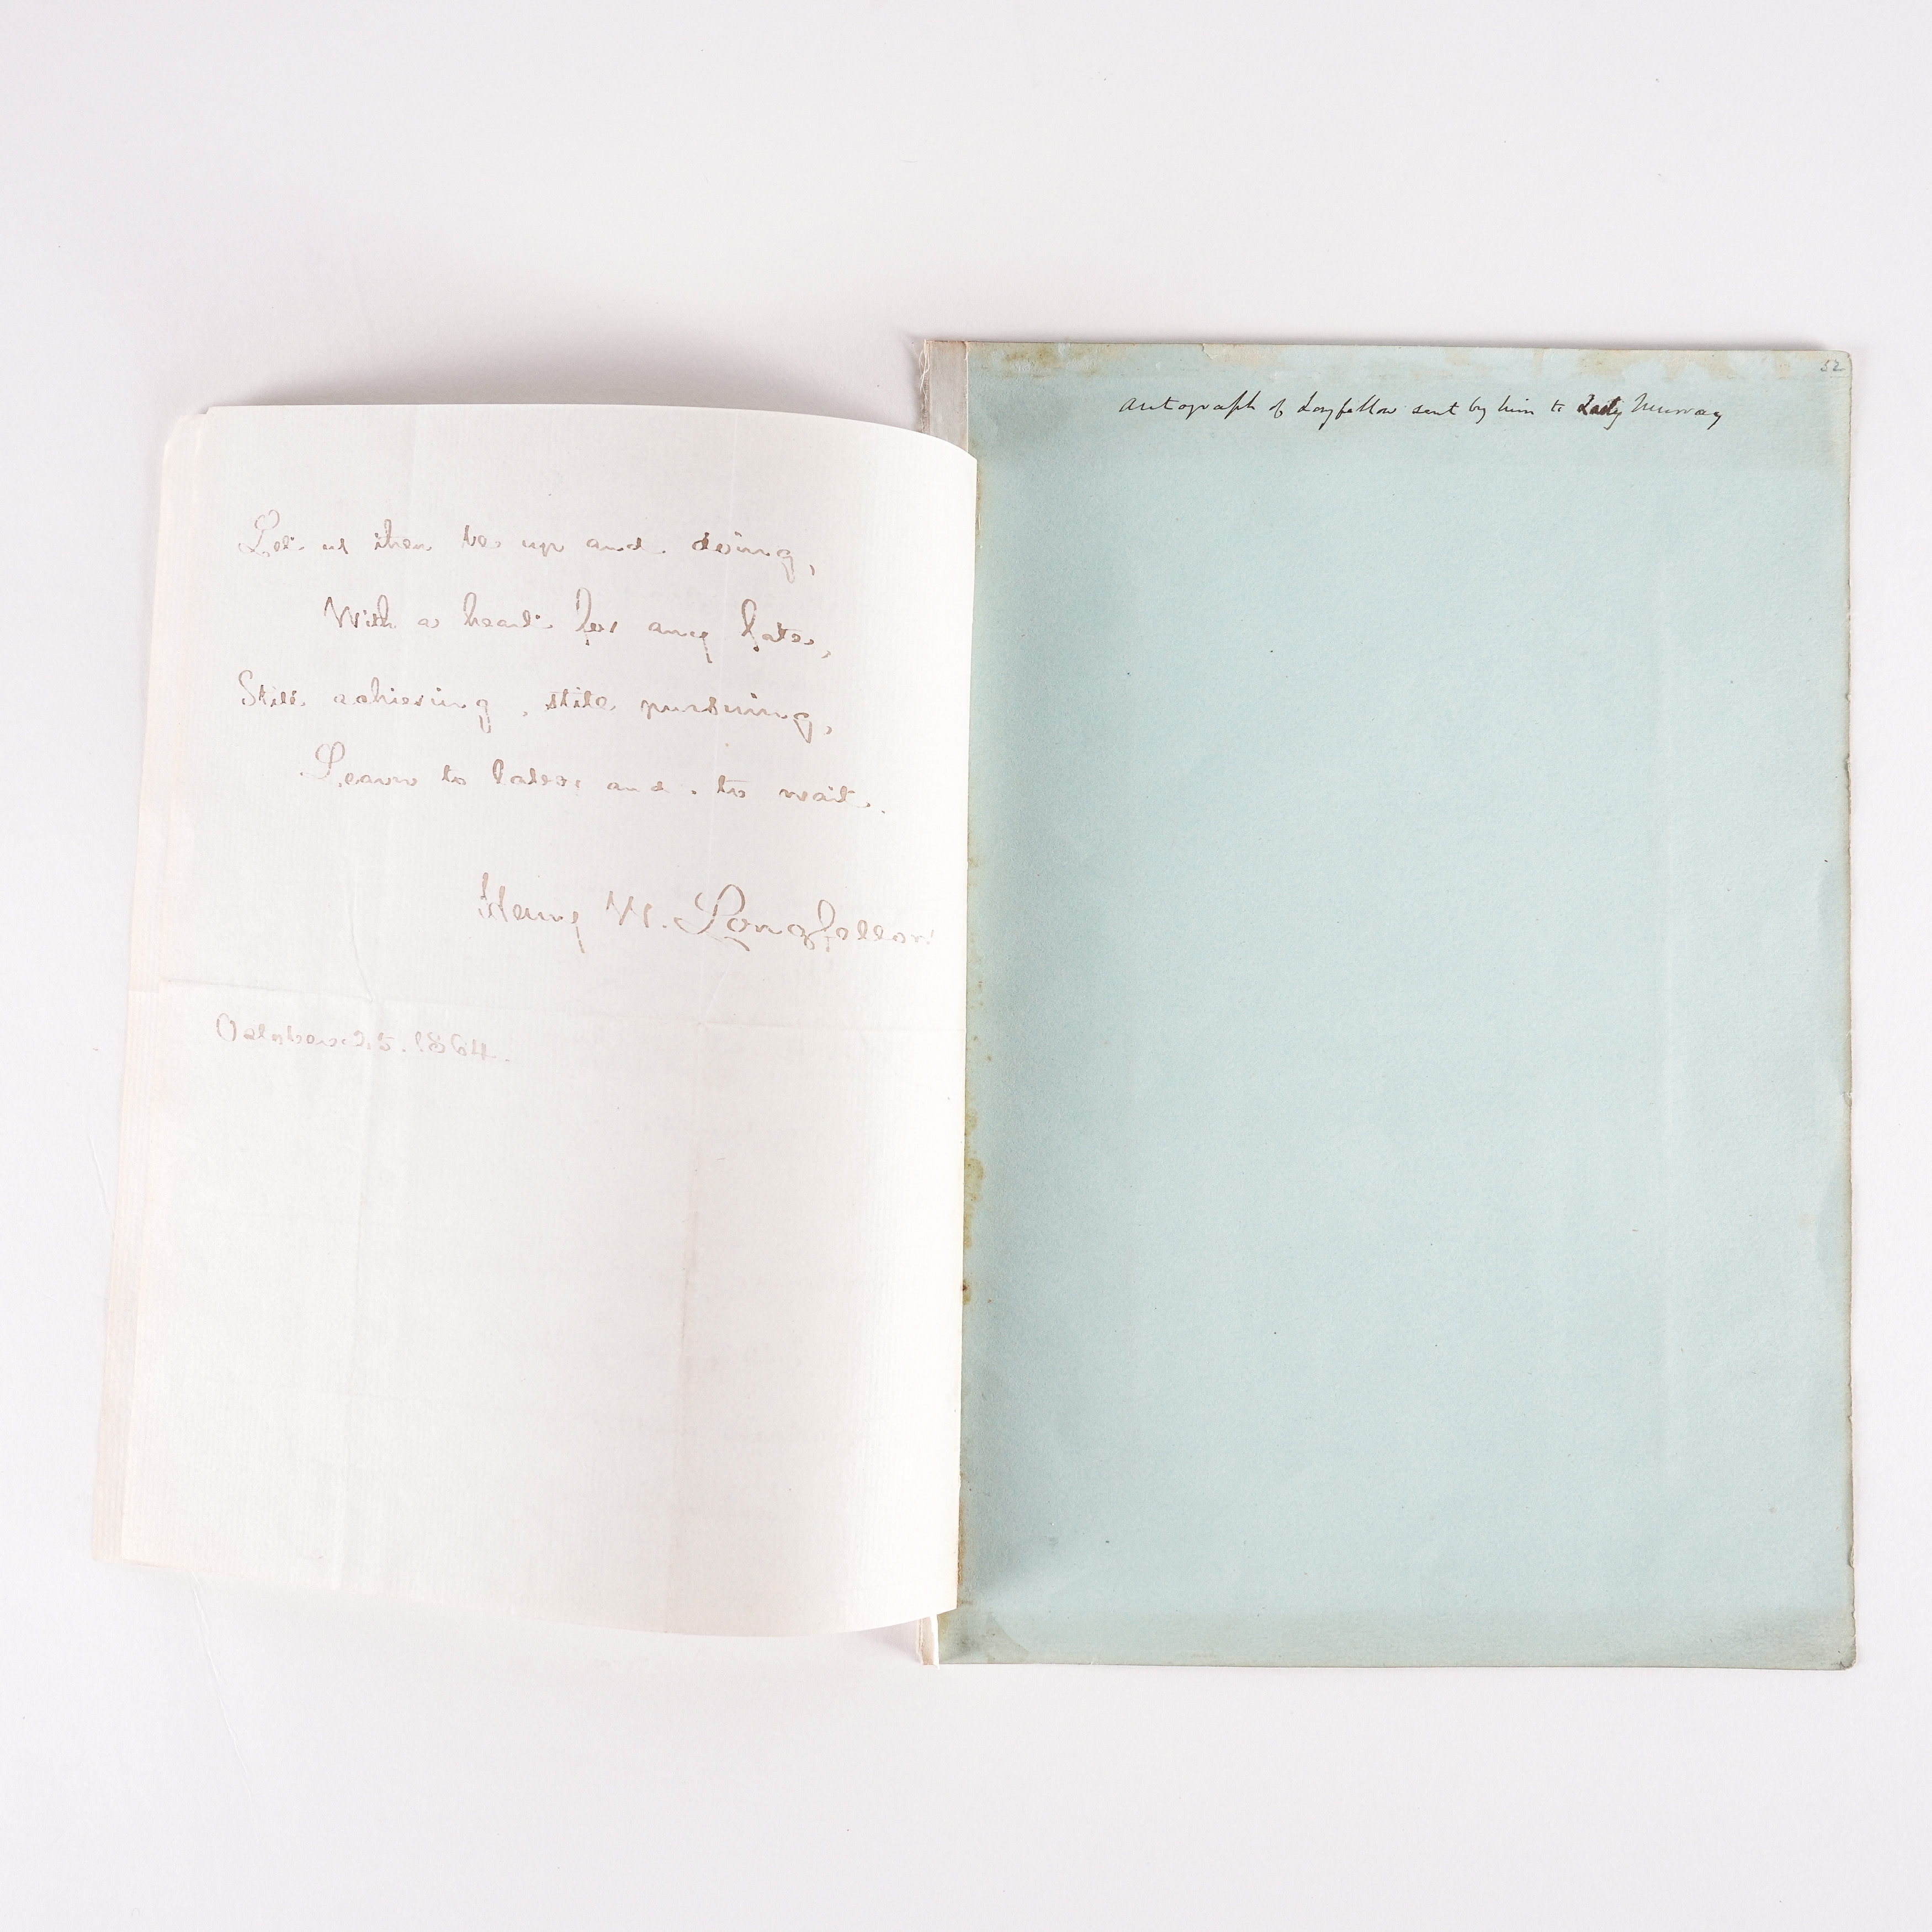 Let us then be up and doing,
With a heart for any fate,
Still achieving, still pursuing,
Learn to labor and to wait.
Henry W. Longfellow
October 25. 1864.
52
Autograph of Longfellow sent by him to Lady Murray